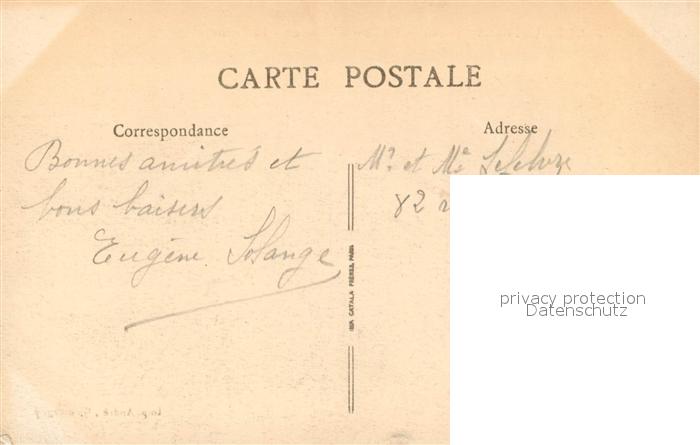 CARTE POSTALE
Correspondance
Adresse
Bonnes amitiés et
bons baisers
Eugène Solange
Mr. et Me
82 r
IMP. CATALA FRÈRES, PARIS
privacy protection
Datenschutz